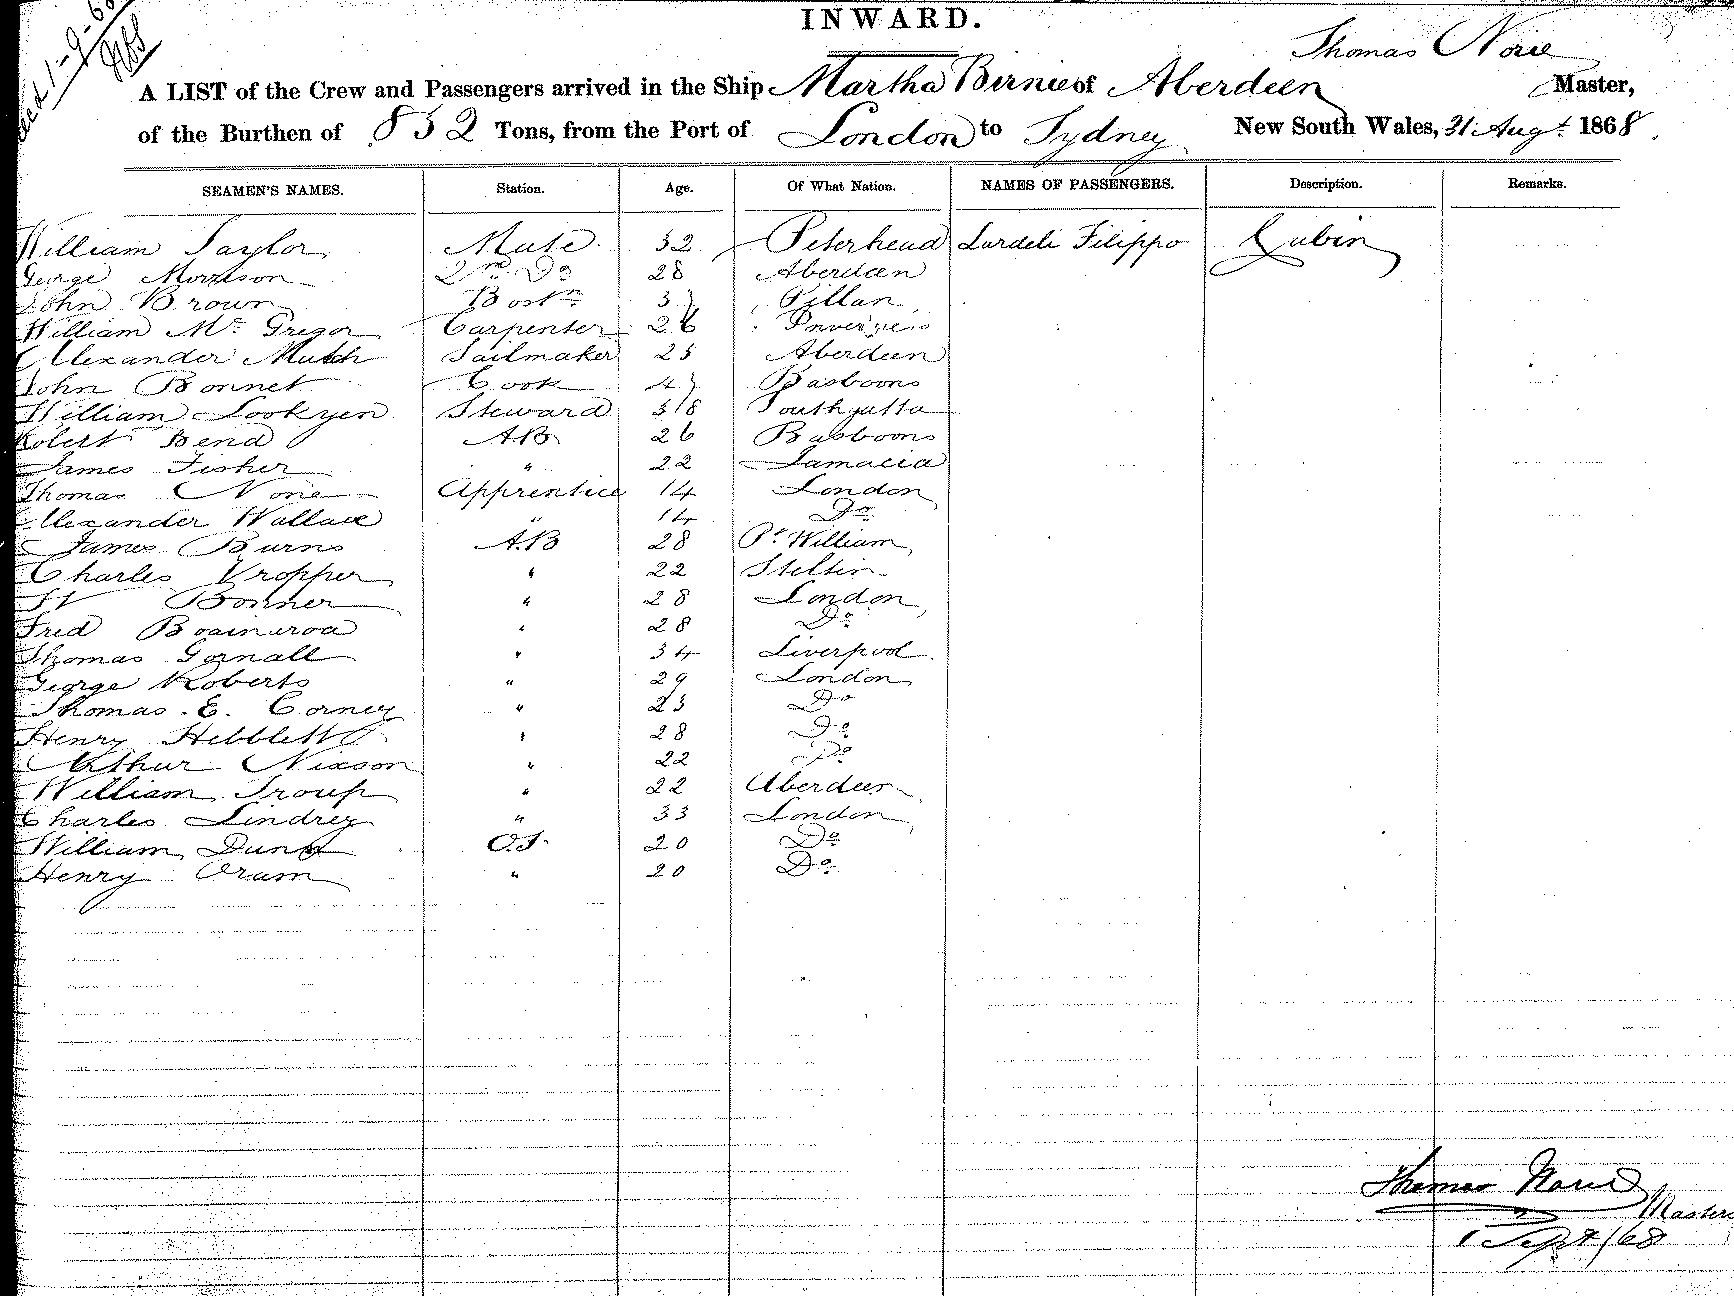 INWARD.
Thomas Norie
A LIST of the Crew and Passengers arrived in the Ship Martha Birnie of Aberdeen Master,
of the Burthen of 832 Tons, from the Port of London to Sydney New South Wales, 31 Augt. 1868.
SEAMEN'S NAMES. Station. Age. Of What Nation. NAMES OF PASSENGERS. Description. Remarks.
William Taylor Mate 32 Peterhead Lardeli Filippo Cabin
George Morrison 2nd Do 28 Aberdeen
John Brown Bostn Pillan
William Mc Gregor Carpenter 26
Alexander Mutch Sailmaker 25 Aberdeen
John Bonnet Cook Basboons
William Lookyen Steward 38
Robert Bend AB 26 Basboons
James Fisher " 22 Jamacia
Thomas Norie Apprentice 14 London
Alexander Wallace " 14 Do
James Burns A.B 28 Pt William
Charles Kropper " 22 Stettin
Bonner " 28 London
Fred " 28 Do
Thomas Gornall " 34 Liverpool
George Roberts " 29 London
Thomas E. Corney " 23 Do
Henry Hebblett " 28 Do
Arthur Nixson " 22 Do
William Troup " 22 Aberdeen
Charles Lindrey " 33 London
William Dunn O.S. 20 Do
Henry Oram " 20 Do
Thomas Norie
Master
1 Sept/68